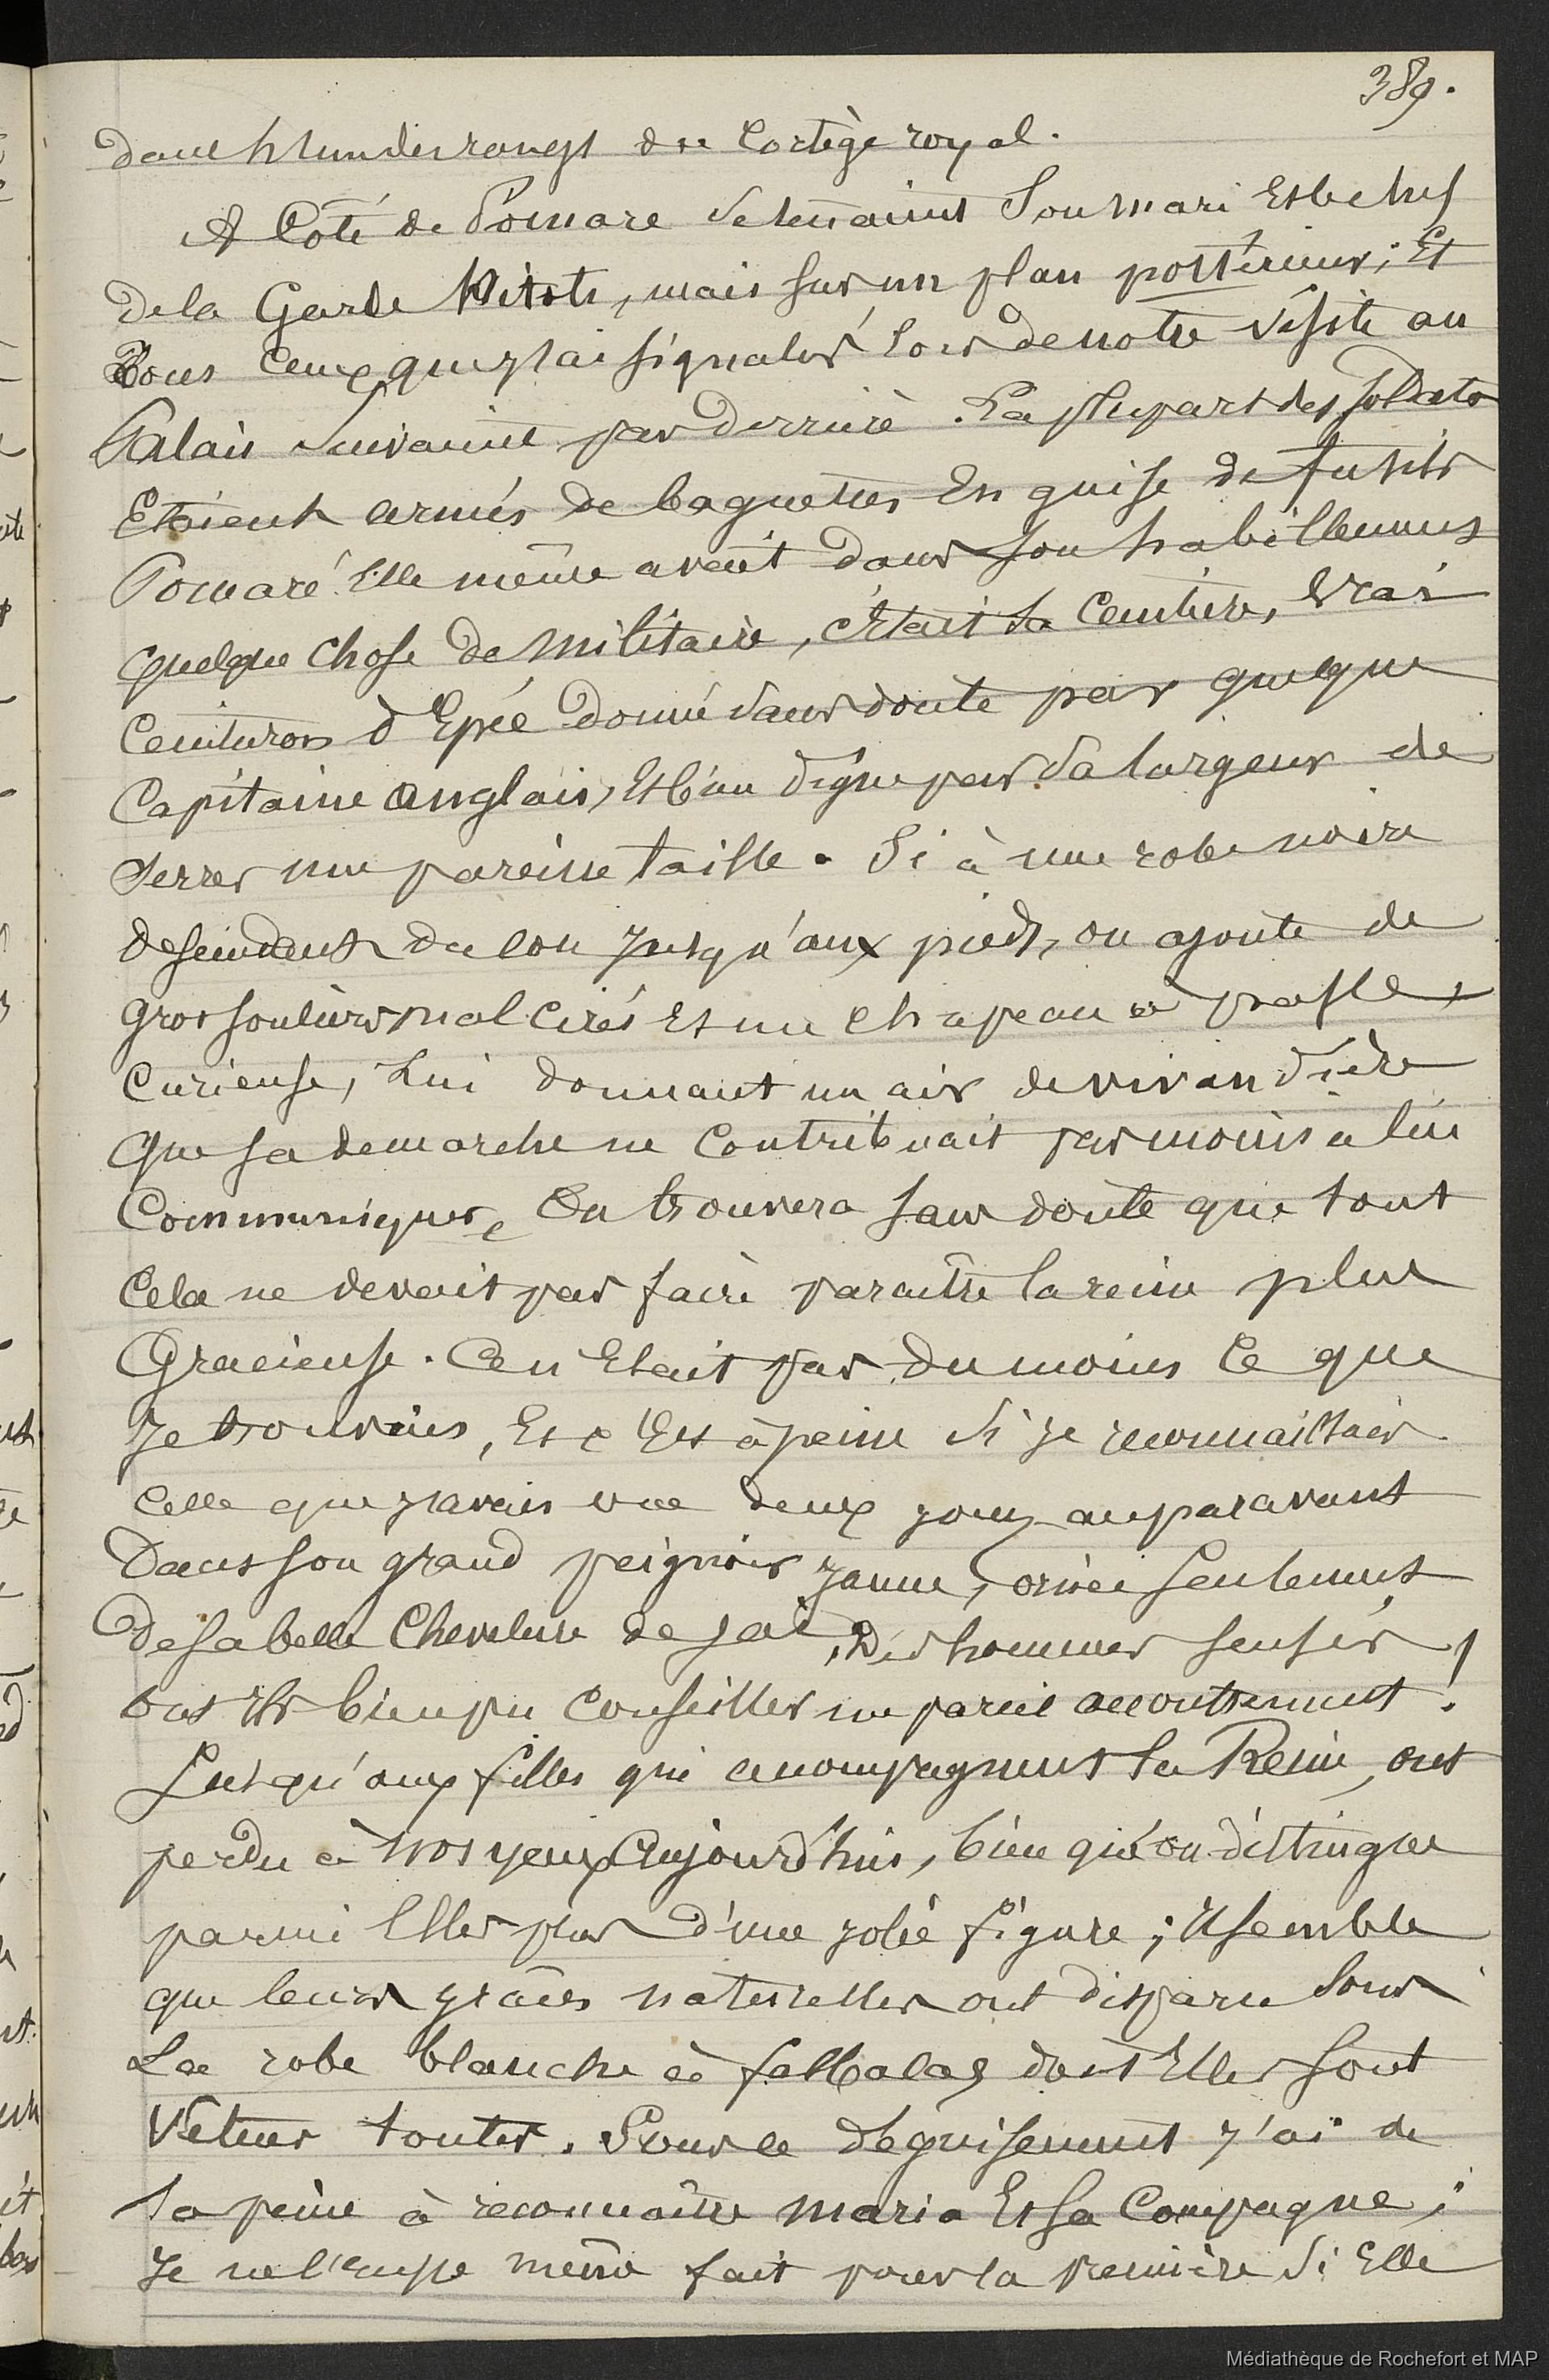 389.
dans les rangs du Cortège royal.
A Côté de Pomare se tenaient son mari Et le chef
de la Garde Mitoti, mais sur un plan posterieur; Et
Tous Ceux que j'ai signalés lors de notre visite au
Palais suivaient par derrière. La plupart des soldats
Etaient armés de baguettes En guise de fusils
Pomaré Elle même avait dans son habillement
quelque chose de militaire, c'était sa Ceinture, vrai
Ceinturon d'Epée donné sans doute par quelque
Capitaine anglais, Et bien digne par sa largeur de
serrer une pareille taille. Si à une robe noire
descendant du cou jusqu'aux pieds, on ajoute de
gros souliers mal cirés Et un chapeau à passe
Curieuse, lui donnant un air de vivandière
que sa demarche ne Contribuait pas moins a lui
Communiquer, On trouvera sans doute que tout
Cela ne devait pas faire paraître la reine plus
Gracieuse. Ce n'Etait pas du moins Ce que
Je trouvais, Et c'Est à peine si je reconnaissais
Celle que j'avais vue deux jours auparavant
Dans son grand peignoir jaune, ornée seulement
de sa belle Chevelure de jais, Des hommes sensés
ont ils bien pu Conseiller un pareil accoutrement!
Jusqu'aux filles qui accompagnent la Reine, ont
perdu à nos yeux aujourd'hui, bien qu'on distingue
parmi Elles plus d'une jolie figure; il semble
que leurs grâces naturelles ont disparu sous
La robe blanche à falbalas dont Elles sont
Vêtues toutes. Sous ce déguisement j'ai de
la peine à reconnaître maria Et sa Compagne;
Je ne l'eusse même fait pour la première si Elle
Médiathèque de Rochefort et MAP